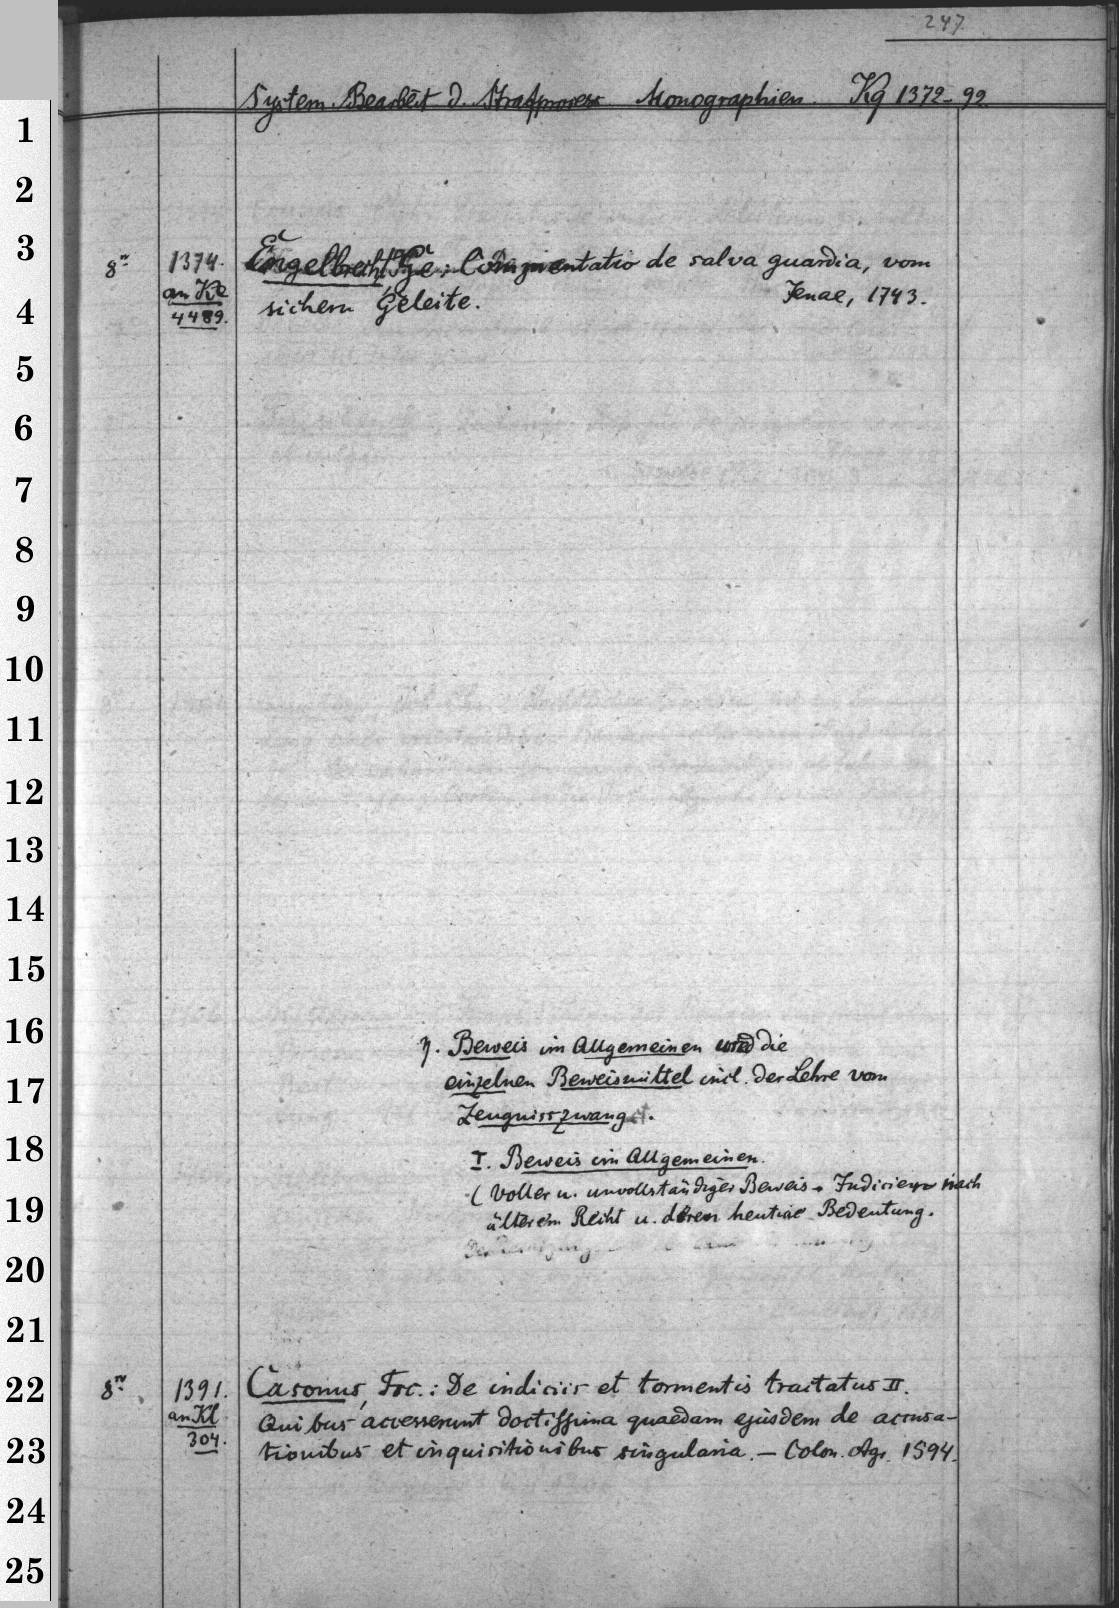 247
System. Bearbeit d. Strafprozess Monographien. Kg 1372-92
8º 1374. Engelbrecht, Ge.: Commentatio de salva guardia, vom
an Ke sichern Geleite. Jenae, 1743.
4489.
η. Beweis im Allgemeinen und die
einzelnen Beweismittel incl. der Lehre vom
Zeugnisszwang.
I. Beweis im Allgemeinen.
(Voller u. unvollständiger Beweis. Indicien nach
älterem Recht u. deren heutige Bedeutung.
8º 1391. Casonus, Frc.: De indiciis et tormentis tractatus II.
an Kl Quibus accesserunt doctissima quaedam ejusdem de accusa-
304. tionibus et inquisitionibus singularia. — Colon. Agr. 1594.
1
2
3
4
5
6
7
8
9
10
11
12
13
14
15
16
17
18
19
20
21
22
23
24
25